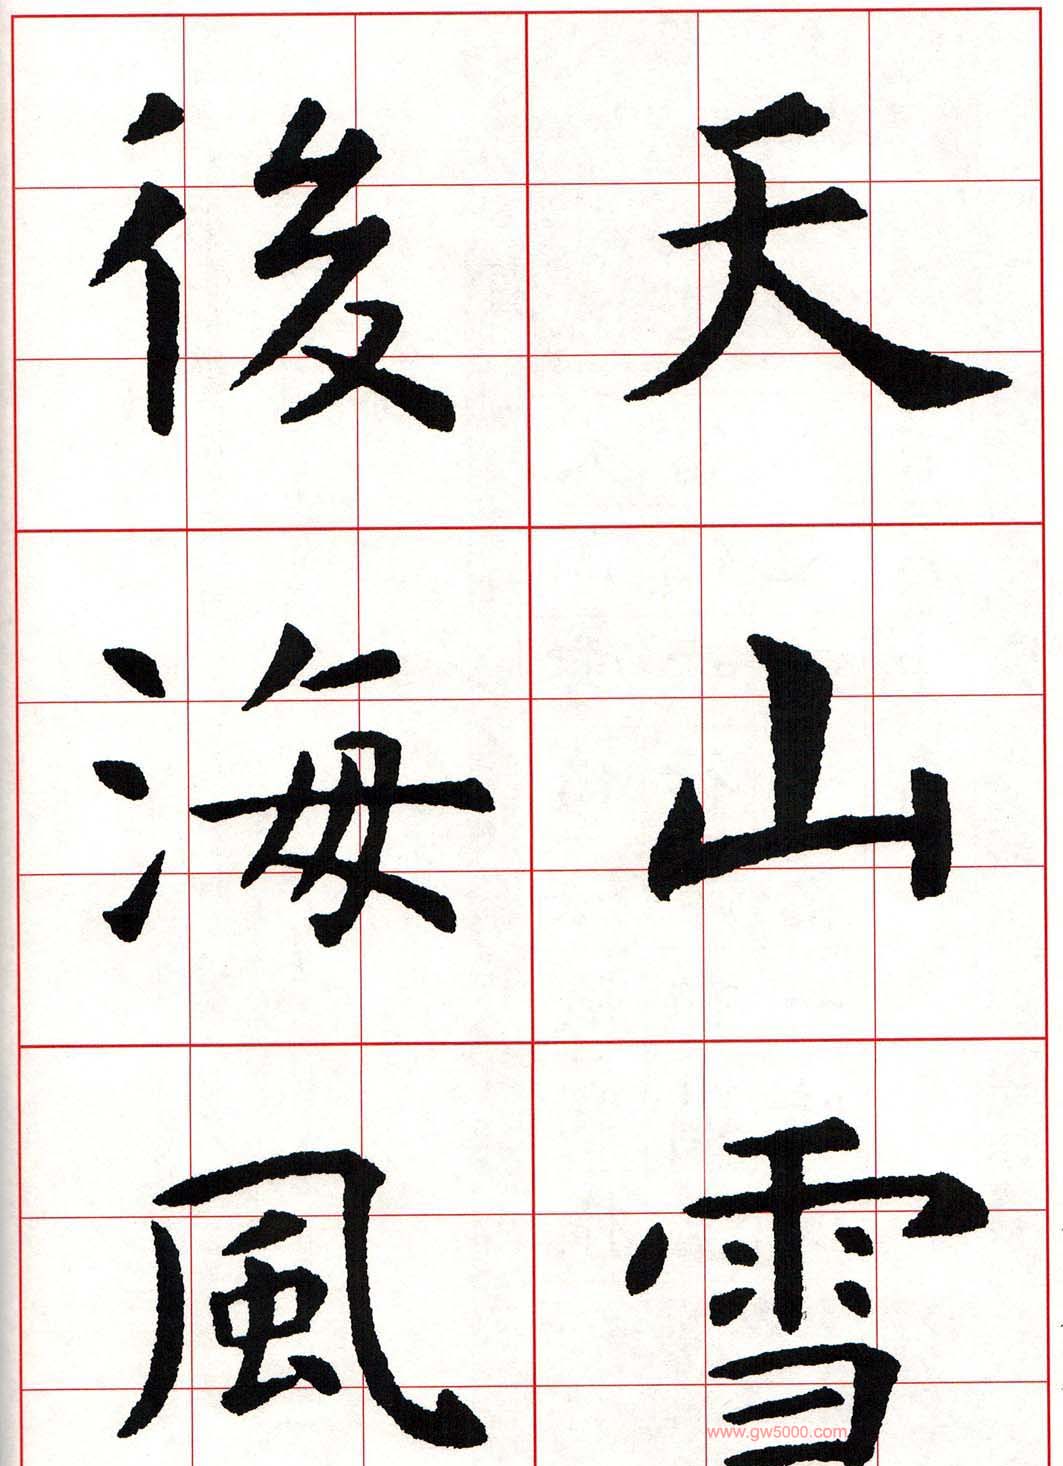 天山雪
後海風
www.gw5000.com